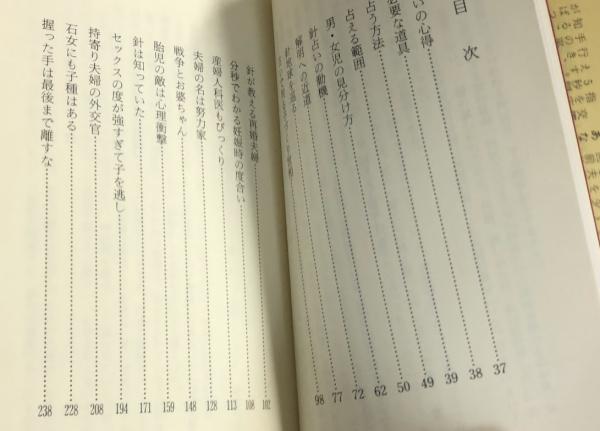 目次
いの心得……37
必要な道具……38
占う方法……39
占える範囲……49
男・女児の見分け方……50
針占いの動機……62
解明への近道……72
針が教える再婚夫婦……102
分秒でわかる妊娠時の度合い……108
産婦人科医もびっくり……113
夫婦の名は努力家……128
戦争とお婆ちゃん……148
胎児の敵は心理衝撃……159
針は知っていた……171
セックスの度が強すぎて子を逃し……194
持寄り夫婦の外交官……208
石女にも子種はある……228
握った手は最後まで離すな……238